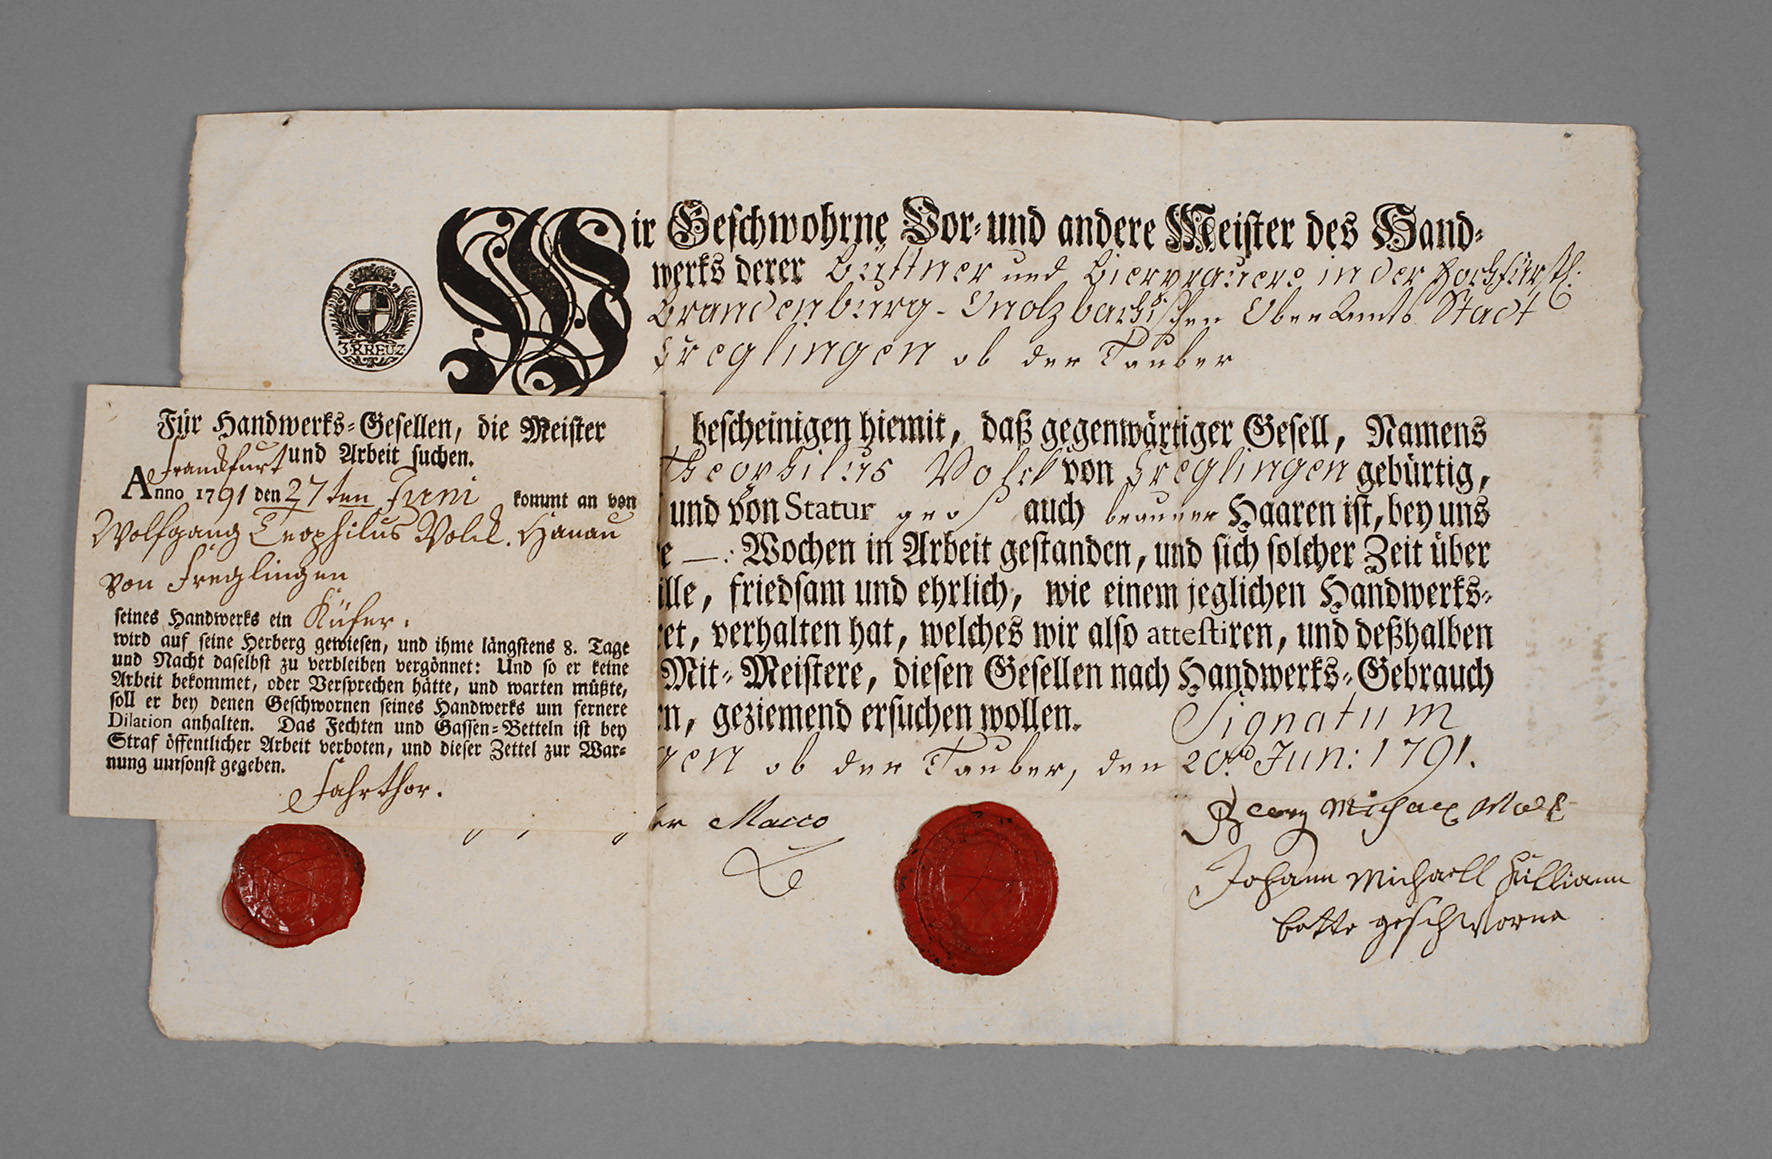 Wir Geschwohrne Vor- und andere Meister des Hand-
werks derer Büttner und Bierbrauere in der Hochfürstl.
Brandenburg-Onolzbachischen Ober Amts Stadt
Creglingen ob der Tauber
3·KREUZ
bescheinigen hiemit, daß gegenwärtiger Gesell, Namens
Theophilus Volck von Creglingen gebürtig,
und von Statur groß auch brauner Haaren ist, bey uns
e —: Wochen in Arbeit gestanden, und sich solcher Zeit über
ille, friedsam und ehrlich, wie einem jeglichen Handwerks-
ret, verhalten hat, welches wir also attestiren, und deßhalben
Mit-Meistere, diesen Gesellen nach Handwerks-Gebrauch
n, geziemend ersuchen wollen. Signatum
gen ob der Tauber, den 20. Jun: 1791.
er Macco
Georg Michael Volk
Johann Michaell
geschworne
Für Handwerks-Gesellen, die Meister
Franckfurt und Arbeit suchen.
Anno 1791 den 27ten Juni kommt an von
Wolfgang Teophilus Volck. Hanau
von Freglingen
seines Handwerks ein Küfer.
wird auf seine Herberg gewiesen, und ihme längstens 8. Tage
und Nacht daselbst zu verbleiben vergönnet: Und so er keine
Arbeit bekommet, oder Versprechen hätte, und warten müßte,
soll er bey denen Geschwornen seines Handwerks um fernere
Dilation anhalten. Das Fechten und Gassen-Betteln ist bey
Straf öffentlicher Arbeit verboten, und dieser Zettel zur War-
nung umsonst gegeben.
Fahrthor.